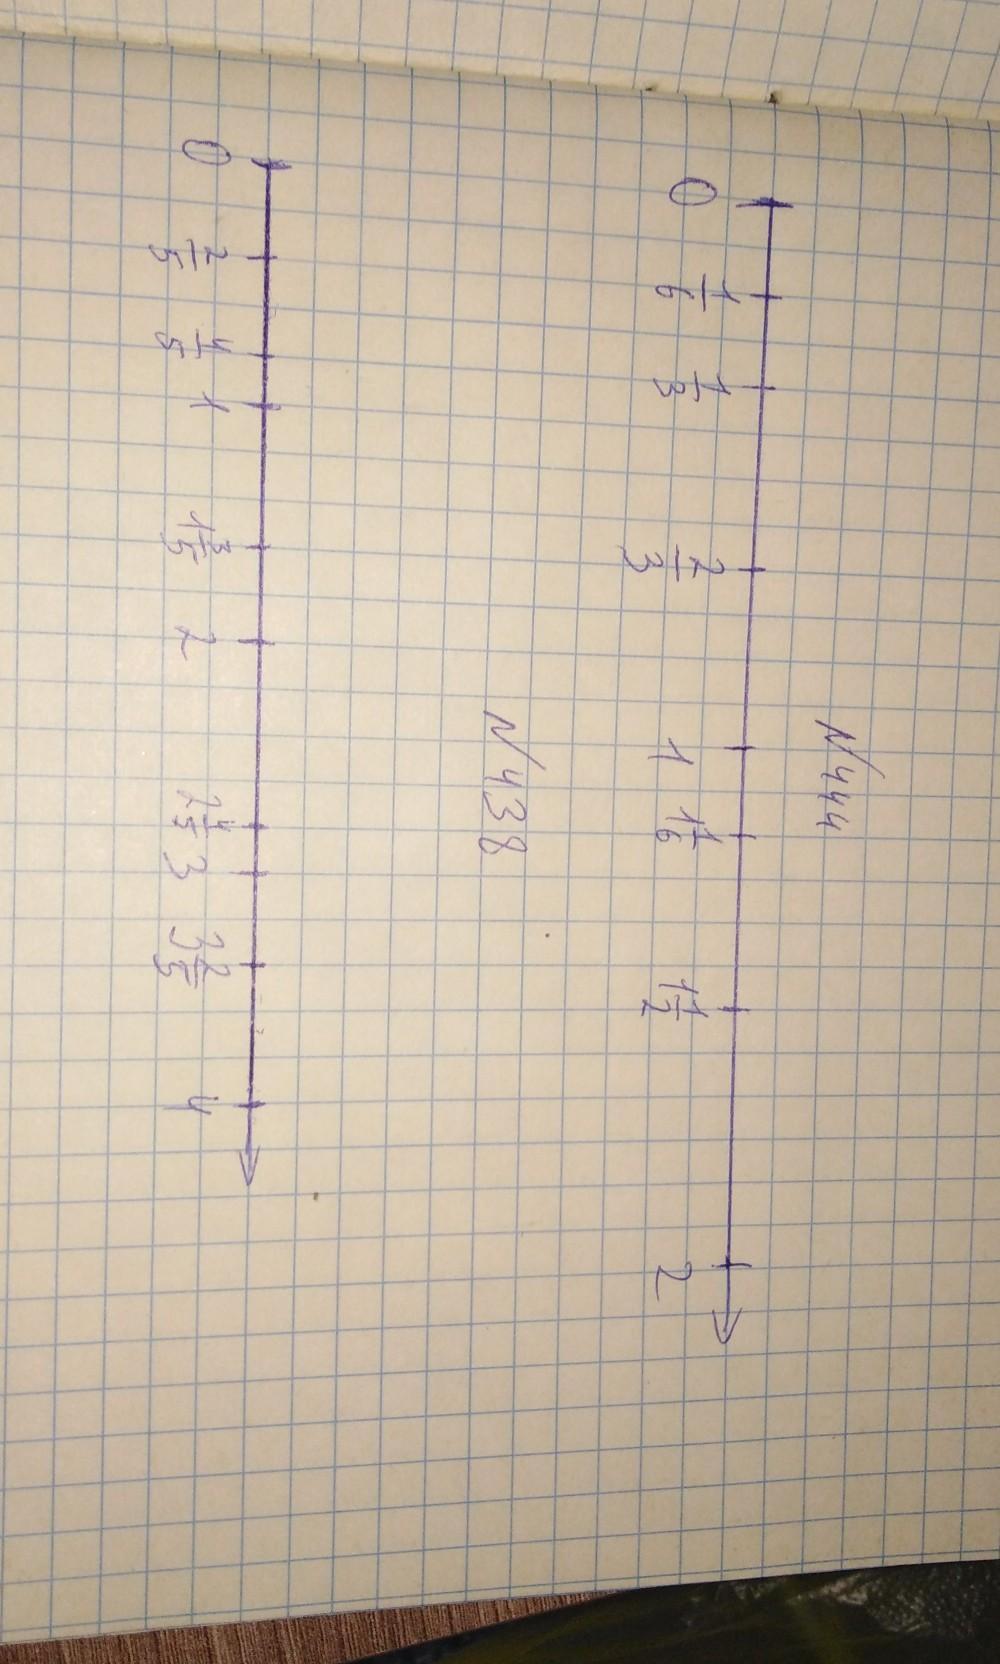 N444
0 1/6 1/3 2/3 1 1 1/6 1 1/2 2
N438
0 2/5 4/5 1 1 3/5 2 2 4/5 3 3 2/5 4